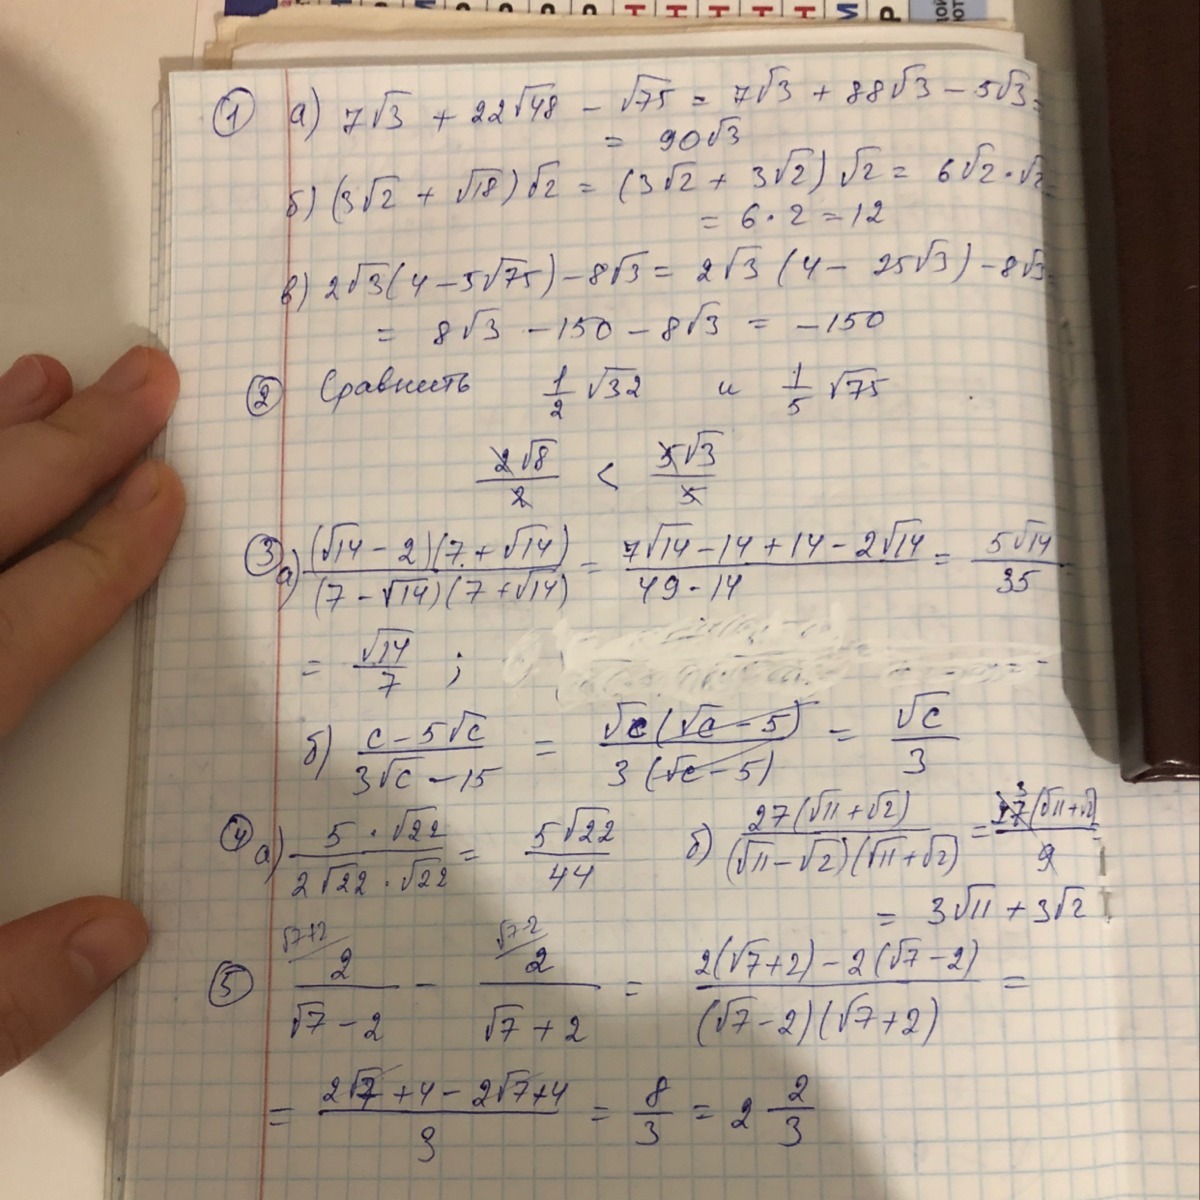 ① а) 7√3 + 22√48 - √75 = 7√3 + 88√3 - 5√3 =
= 90√3
б) (3√2 + √18)√2 = (3√2 + 3√2)√2 = 6√2·√2 =
= 6·2 = 12
в) 2√3(4 - 5√75) - 8√3 = 2√3 (4 - 25√3) - 8√3 =
= 8√3 - 150 - 8√3 = -150
② Сравнить 1/2 √32 и 1/5 √75
2√8/2 < 5√3/5
③ а) (√14 - 2)(7 + √14)/(7 - √14)(7 + √14) = 7√14 - 14 + 14 - 2√14/49 - 14 = 5√14/35
= √14/7 ;
б) c - 5√c/3√c - 15 = √c(√c - 5)/3(√c - 5) = √c/3
④ а) 5·√22/2√22·√22 = 5√22/44 б) 27(√11 + √2)/(√11 - √2)(√11 + √2) = 27 3(√11 + √2)/9 =
= 3√11 + 3√2
⑤ √7+2/ 2/√7 - 2 - √7-2/ 2/√7 + 2 = 2(√7+2) - 2(√7 - 2)/(√7 - 2)(√7 + 2) =
= 2√7 + 4 - 2√7 + 4/3 = 8/3 = 2 2/3